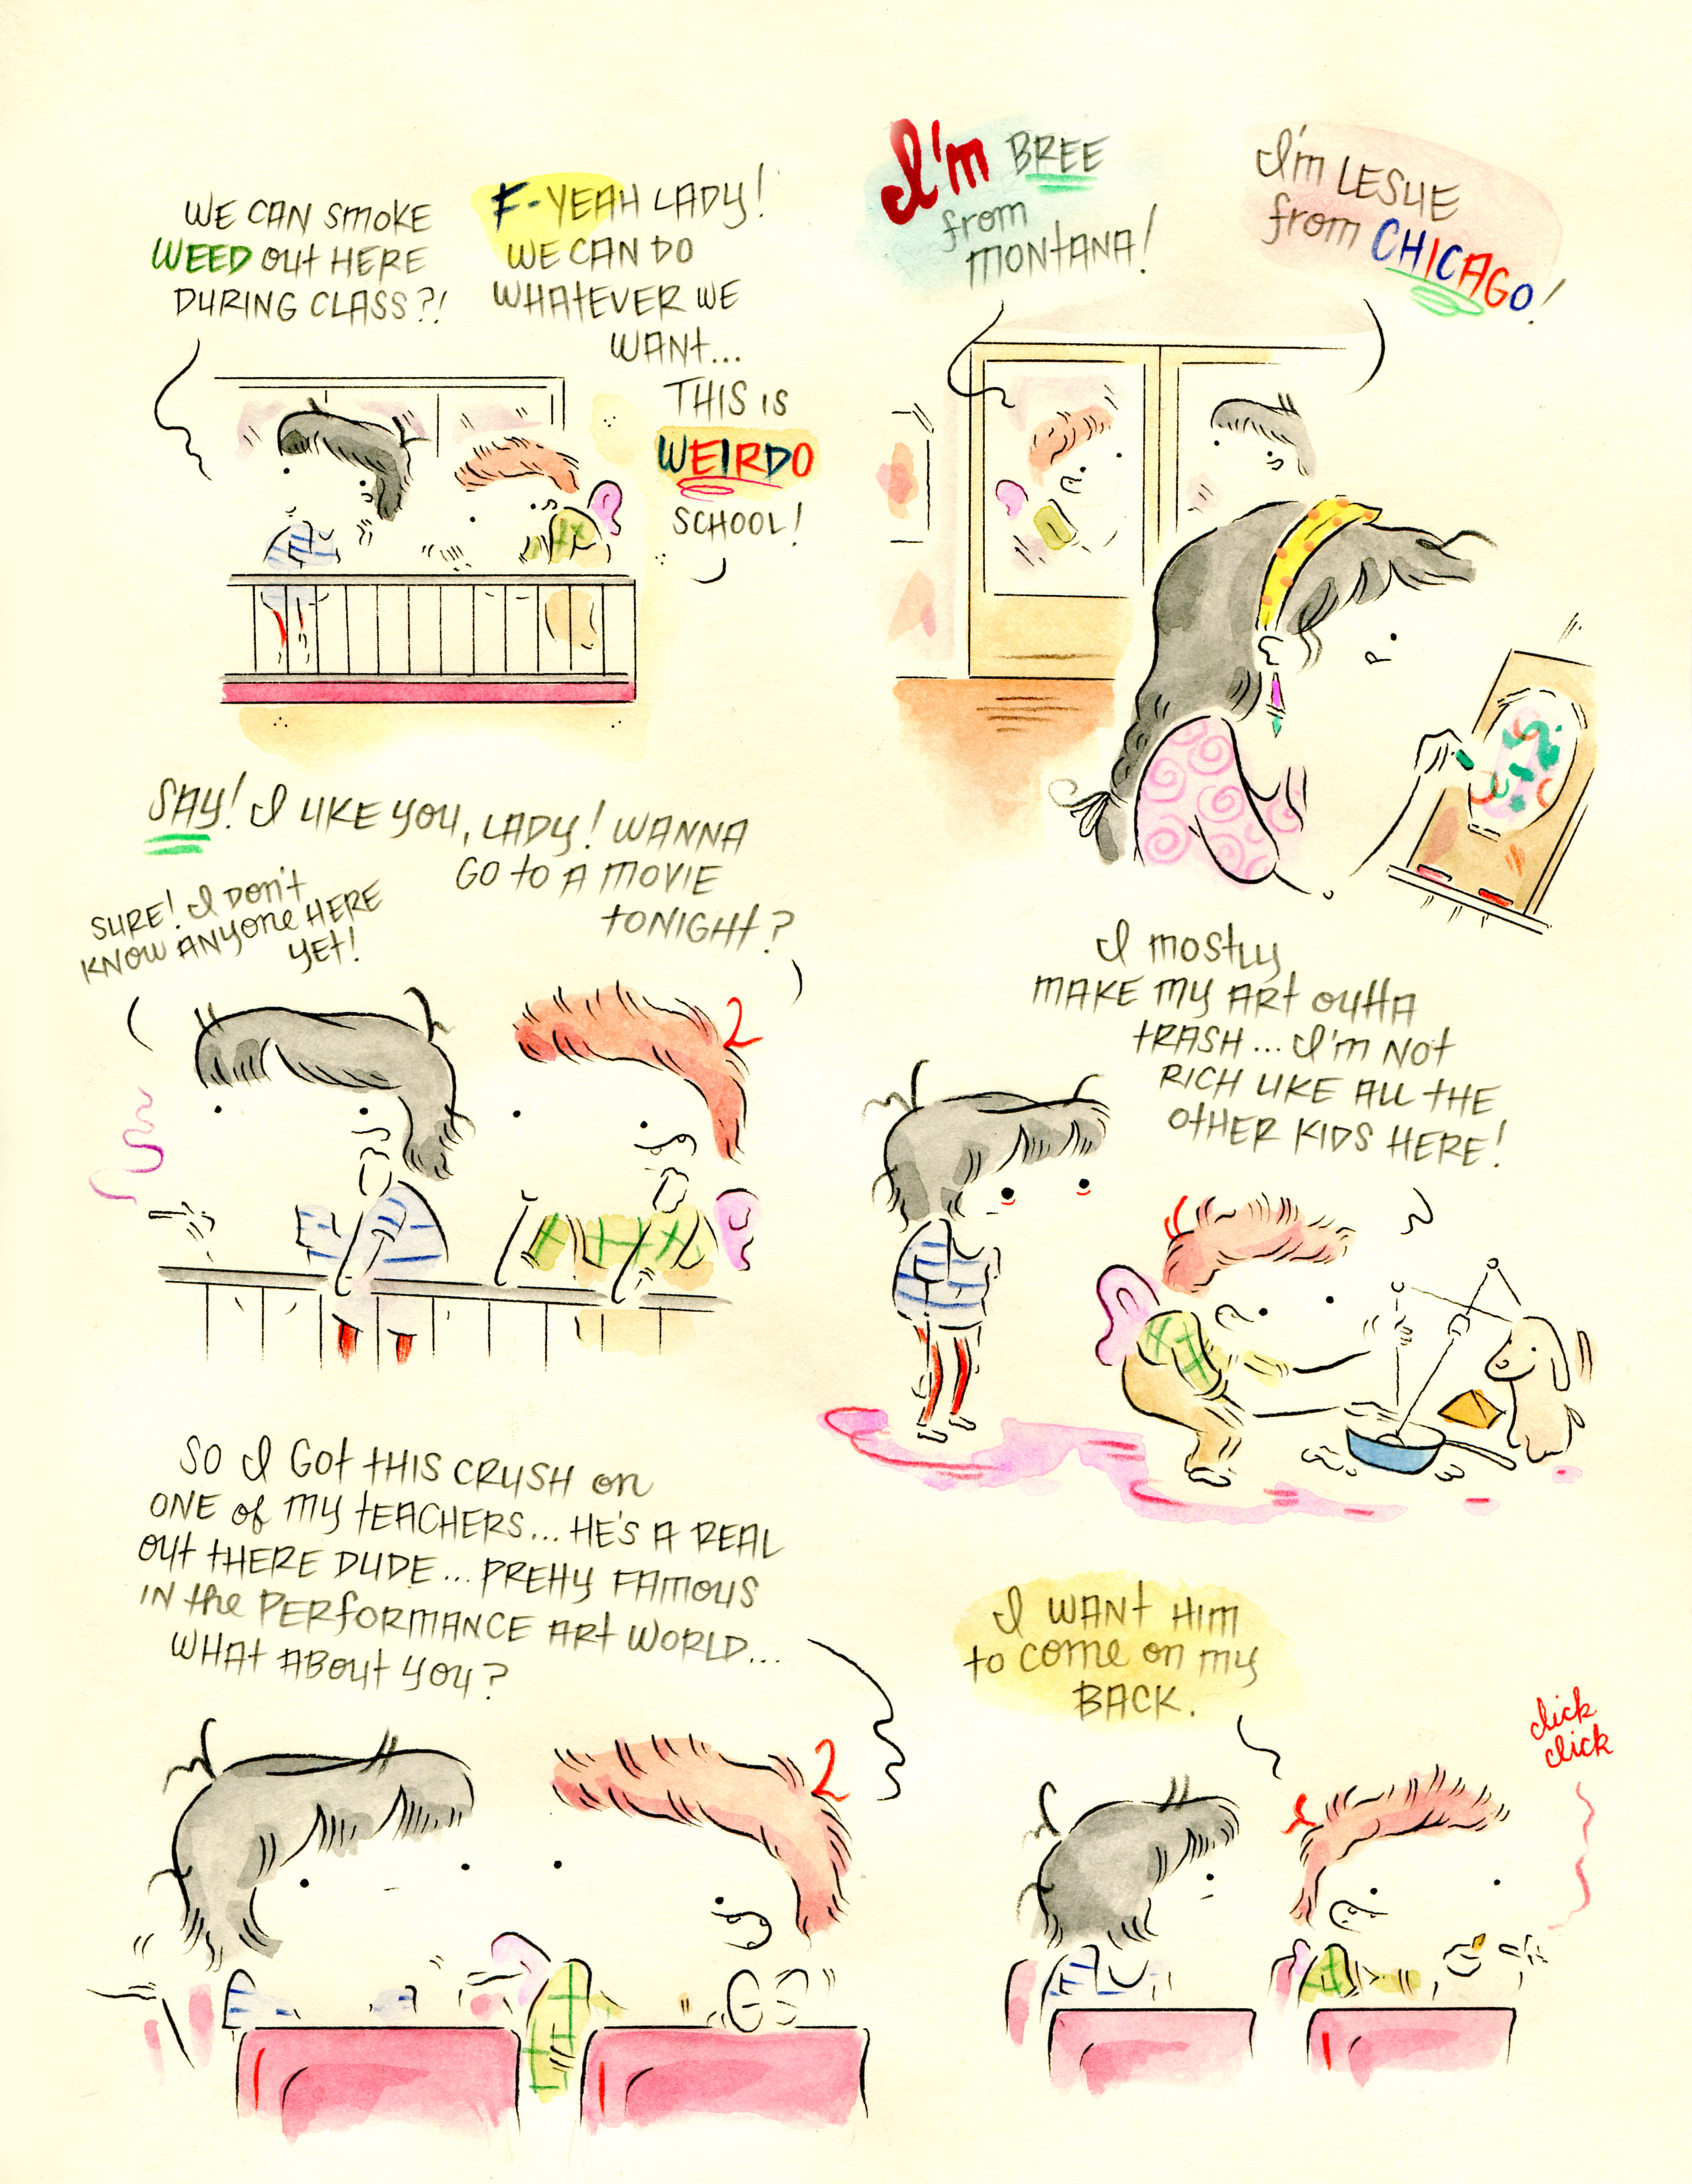 WE CAN SMOKE
WEED OUT HERE
DURING CLASS?!
F-YEAH LADY!
WE CAN DO
WHATEVER WE
WANT...
THIS IS
WEIRDO
SCHOOL!
I'm BREE
from
MONTANA!
I'm LESLIE
from CHICAGO!
SAY! I LIKE YOU, LADY! WANNA
GO TO A MOVIE
TONIGHT?
SURE! I DON'T
KNOW ANYONE HERE
YET!
I mostly
MAKE MY ART OUTTA
TRASH... I'M NOT
RICH LIKE ALL THE
OTHER KIDS HERE!
SO I GOT THIS CRUSH on
ONE of MY TEACHERS... HE'S A REAL
OUT THERE DUDE... PRETTY FAMOUS
IN the PERFORMANCE ART WORLD...
WHAT ABOUT YOU?
I WANT HIM
to come on my
BACK.
click
click